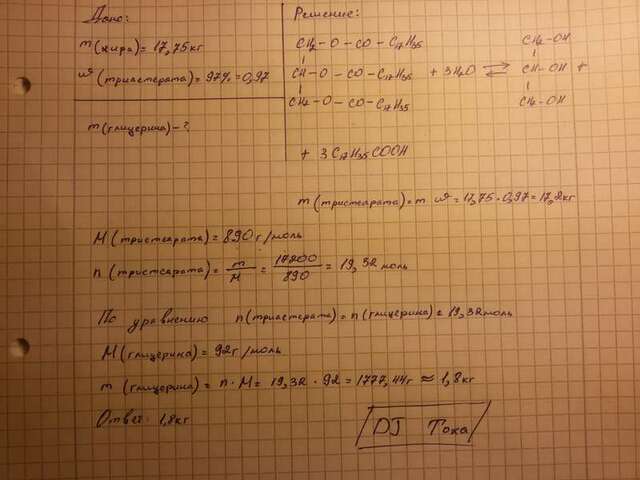 Дано:
m(жира) = 17,75кг
ω(триастерата) = 97% = 0,97
m(глицерина) - ?
Решение:
CH₂ - O - CO - C₁₇H₃₅
CH - O - CO - C₁₇H₃₅ + 3H₂O ⇄ CH - OH +
CH₂ - O - CO - C₁₇H₃₅
CH₂ - OH
CH₂ - OH
+ 3 C₁₇H₃₅COOH
m(тристеарата) = m · ω = 17,75 · 0,97 = 17,2кг
M(тристеарата) = 890г/моль
n(тристеарата) = m/M = 17200/890 = 19,32 моль
По уравнению n(триастерата) = n(глицерина) = 19,32моль
M(глицерина) = 92г/моль
m (глицерина) = n · M = 19,32 · 92 = 1777,44г ≈ 1,8кг
Ответ: 1,8кг
DJ Тоха